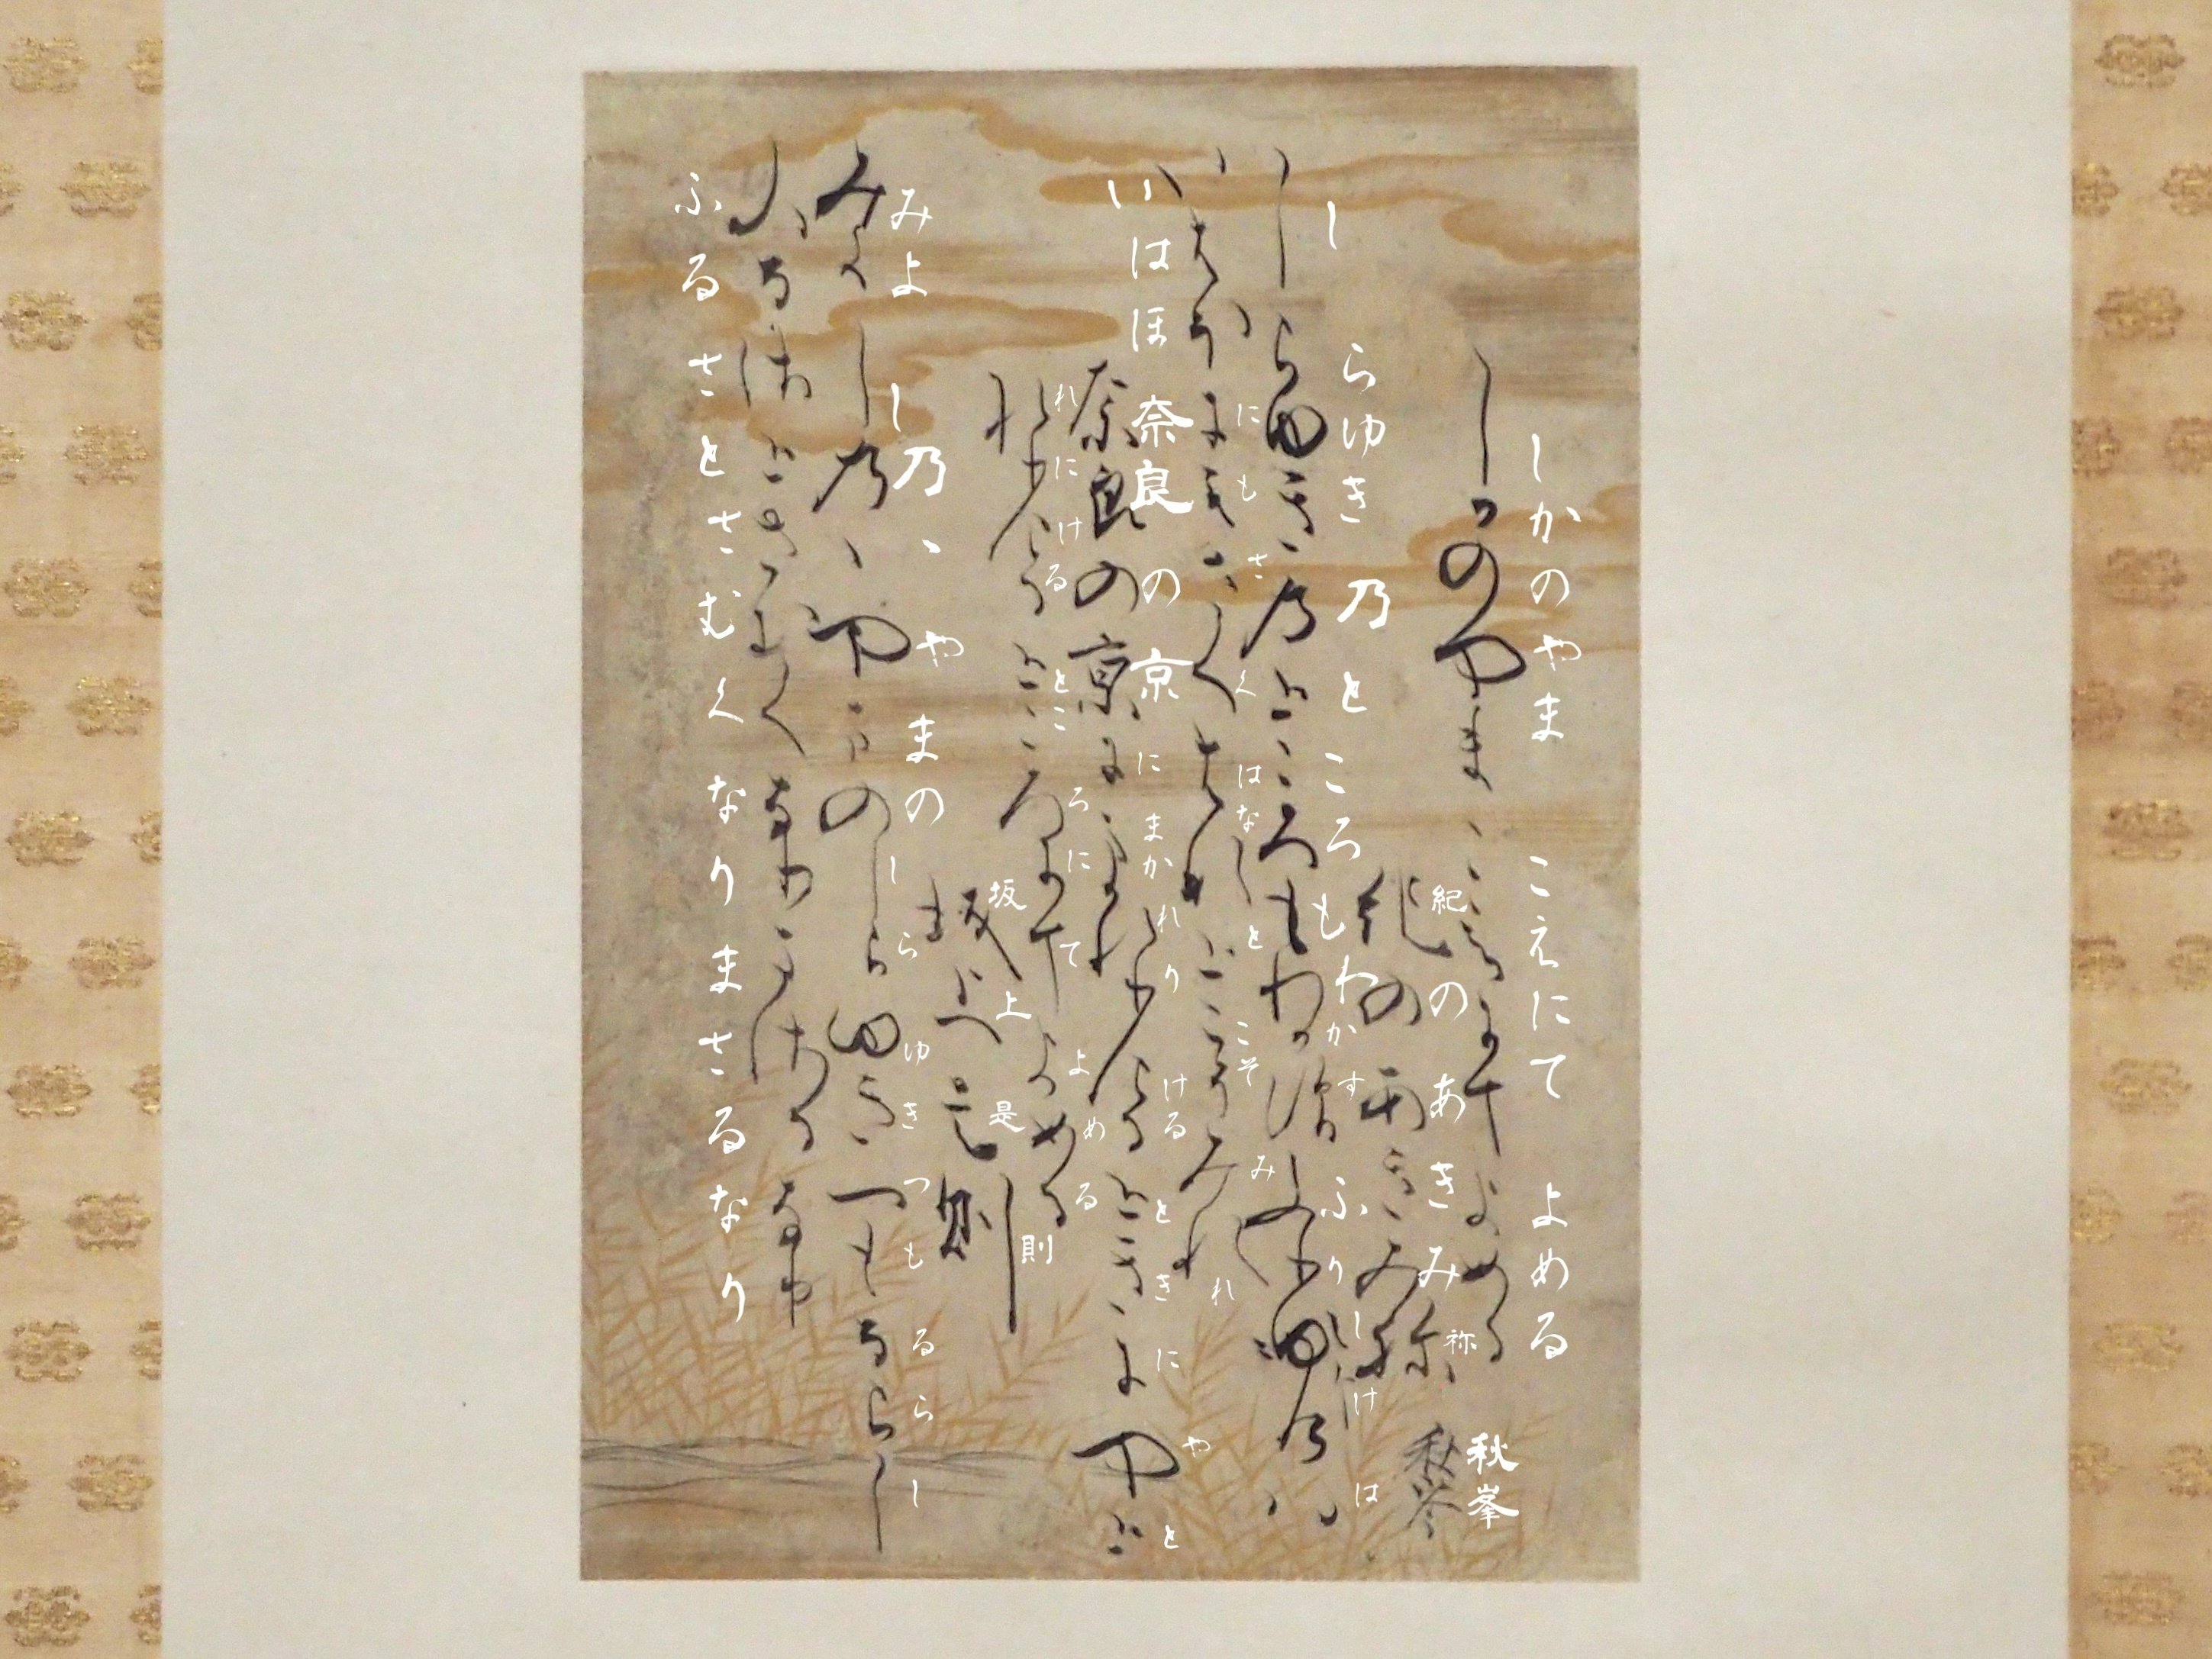 しかのやまこえにてよめる
紀のあきみ祢 秋峯
しらゆき乃ところもわかすふりしけは
いはほにもさくはなとこそみれ
奈良の京にまかれりけるときにやと
れにけるところにてよめる
坂上是則
みよし乃ゝやまのしらゆきつもるらし
ふるさとさむくなりまさるなり